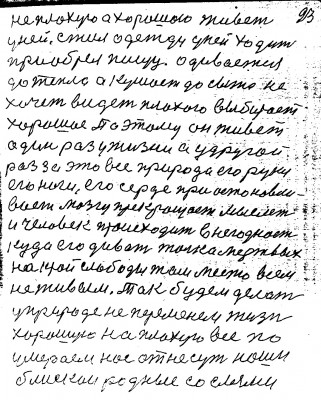 не плохую а хорошого живет 93
у ней, с нил одежду у ней ходит
приобрел пищу. одевается
до тепла а кушает до сыто не
хочит видет плохого выбирает
хорошае Поэтому он живет
один раз у жизни а у другой
раз за это все природа его руки
его ноги, его серце приостоновли-
вает мозгу прекращает мыслет
и человек происходит в негодност
куда его дивает точка мертвых
на слободу там место всем
не живым. Так будем делат
у природе не переменем жизн
хорошую на плохую все по
умераем нас отнесут наши
близкаи родные со слёзми